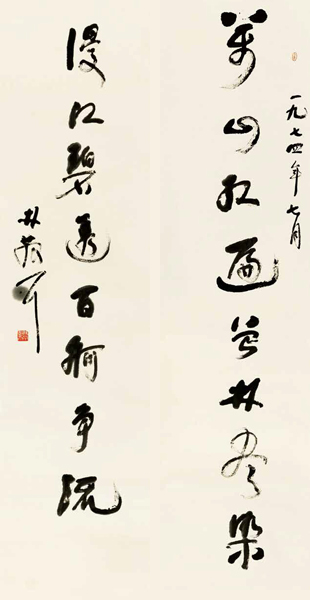 一九七四年七月
萬山红遍层林尽染
漫江碧透百舸争流
林散耳